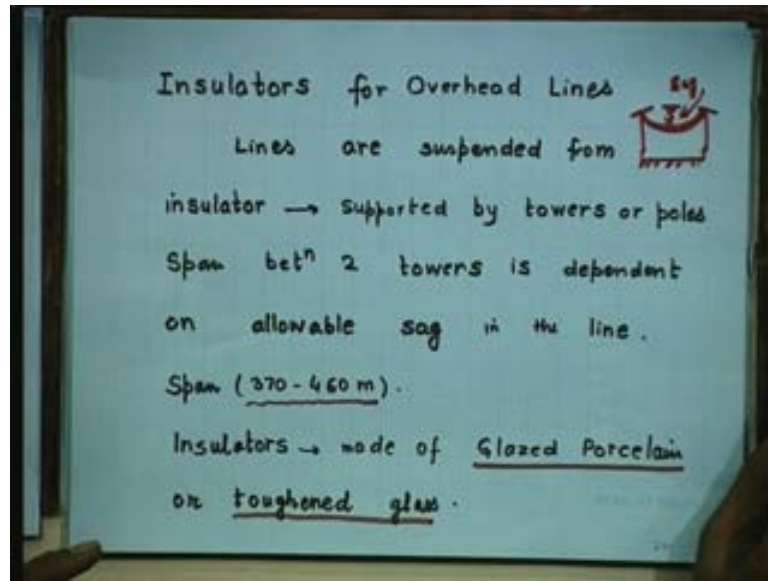 Insulators for Overhead Lines
Sag
Lines are suspended fom
insulator → supported by towers or poles
Span betⁿ 2 towers is dependent
on allowable sag in the line.
Span (370-460 m).
Insulators → made of Glazed Porcelain
or toughened glass.